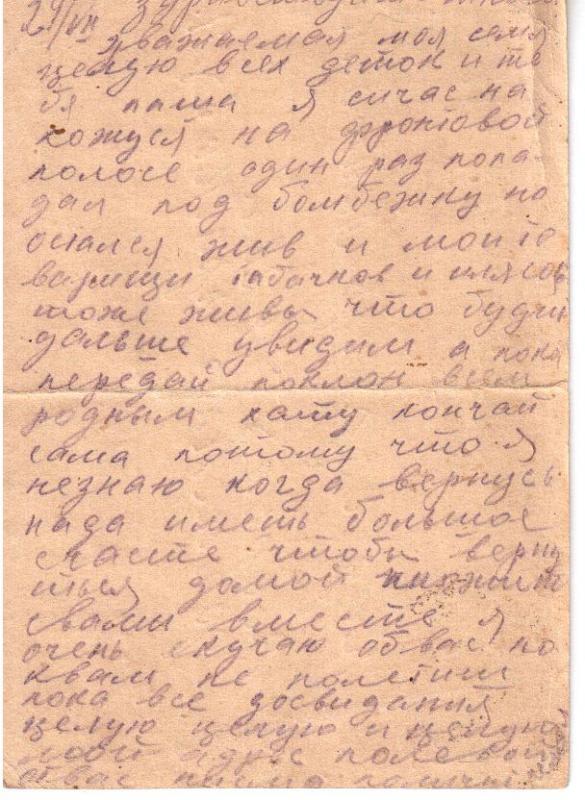 29/VII здравствуйте
уважаемая моя семя
целую всех деток и те
бя паша я сичас на
хожуся на фронтовой
полосе один раз попа
дал под бомбежку но
остался жив и мои то
варищи табачков и
тоже живы что будит
дальше увидим а пока
передай поклон всем
родным хату кончай
сама потому что я
незнаю когда вернусь
нада иметь большое
счасте чтобы верну
ться домой
свами вместе я
очень скучаю обвас но
квам не полетиш
пока все досвидания
целую целую и целую
мой адрес полевой
отвас писмо получил